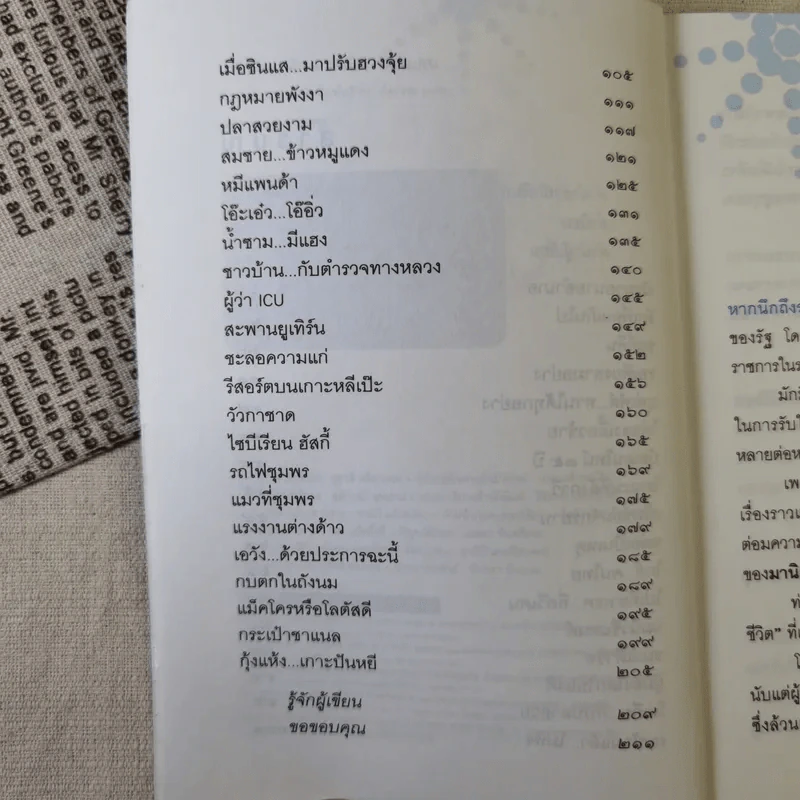 เมื่อซินแส...มาปรับฮวงจุ้ย ๑๐๕
กฎหมายพังงา ๑๑๑
ปลาสวยงาม ๑๑๗
สมชาย...ข้าวหมูแดง ๑๒๑
หมีแพนด้า ๑๒๕
โอ๊ะเอ๋ว...โอ้อิ่ว ๑๓๑
น้ำชาม...มีแฮง ๑๓๕
ชาวบ้าน...กับตำรวจทางหลวง ๑๔๐
ผู้ว่า ICU ๑๔๕
สะพานยูเทิร์น ๑๔๙
ชะลอความแก่ ๑๕๒
รีสอร์ตบนเกาะหลีเป๊ะ ๑๕๖
วัวกาชาด ๑๖๐
ไซบีเรียน ฮัสกี้ ๑๖๕
รถไฟชุมพร ๑๖๙
แมวที่ชุมพร ๑๗๕
แรงงานต่างด้าว ๑๗๙
เอวัง...ด้วยประการฉะนี้ ๑๘๕
กบตกในถังนม ๑๘๙
แม็คโครหรือโลตัสดี ๑๙๕
กระเป๋าชาแนล ๑๙๙
กุ้งแห้ง...เกาะปันหยี ๒๐๕
รู้จักผู้เขียน ๒๐๙
ขอขอบคุณ ๒๑๑
หากนึกถึง
ของรัฐ โด
ราชการใน
มัก
ในการรับ
หลายต่อห
เพ
เรื่องราว
ต่อมความ
ของมานิ
ท
ชีวิต" ที่
นับแต่ผู้
ซึ่งล้วน
members of Greene
are furious that Mr. Sherry
ad exclusive access to
author's papers
ght Greene's
es and
donkey in
included a pictu
d bits of his
ected himself
condemned